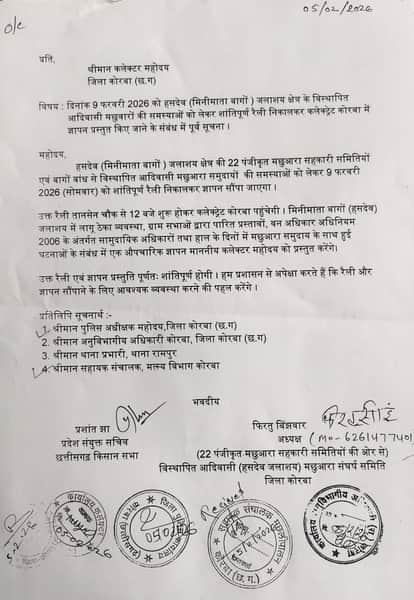 05/02/2026
o/c
प्रति,
श्रीमान कलेक्टर महोदय
जिला कोरबा (छ.ग)
विषय : दिनांक 9 फरवरी 2026 को हसदेव (मिनीमाता बागों ) जलाशय क्षेत्र के विस्थापित
आदिवासी मछुवारों की समस्याओं को लेकर शांतिपूर्ण रैली निकालकर कलेक्ट्रेट कोरबा में
ज्ञापन प्रस्तुत किए जाने के संबंध में पूर्व सूचना ।
महोदय,
हसदेव (मिनीमाता बागों ) जलाशय क्षेत्र की 22 पंजीकृत मछुआरा सहकारी समितियों
एवं बागों बांध से विस्थापित आदिवासी मछुआरा समुदायों की समस्याओं को लेकर 9 फरवरी
2026 (सोमवार) को शांतिपूर्ण रैली निकालकर ज्ञापन सौंपा जाएगा।
उक्त रैली तानसेन चौक से 12 बजे शुरू होकर कलेक्ट्रेट कोरबा पहुंचेगी। मिनीमाता बागों (हसदेव)
जलाशय में लागू ठेका व्यवस्था, ग्राम सभाओं द्वारा पारित प्रस्तावों, वन अधिकार अधिनियम
2006 के अंतर्गत सामुदायिक अधिकारों तथा हाल के दिनों में मछुआरा समुदाय के साथ हुई
घटनाओं के संबंध में एक औपचारिक ज्ञापन माननीय कलेक्टर महोदय को प्रस्तुत करेंगे।
उक्त रैली एवं ज्ञापन प्रस्तुति पूर्णतः शांतिपूर्ण होगी। हम प्रशासन से अपेक्षा करते हैं कि रैली और
ज्ञापन सौंपाने के लिए आवश्यक व्यवस्था करने की पहल करेंगे ।
प्रतिलिपि सूचनार्थ :-
1. श्रीमान पुलिस अधीक्षक महोदय,जिला कोरबा (छ.ग)
2. श्रीमान अनुविभागीय अधिकारी कोरबा, जिला कोरबा (छ.ग)
3. श्रीमान थाना प्रभारी, थाना रामपुर
4. श्रीमान सहायक संचालक, मत्स्य विभाग कोरबा
भवदीय
प्रशांत झा
प्रदेश संयुक्त सचिव
छत्तीसगढ़ किसान सभा
फिरतु बिंझवार
अध्यक्ष (mo-6261477401)
(22 पंजीकृत मछुआरा सहकारी समितियों की ओर से)
विस्थापित आदिवासी (हसदेव जलाशय) मछुआरा संघर्ष समिति
जिला कोरबा
कोरबा (छ.ग.)